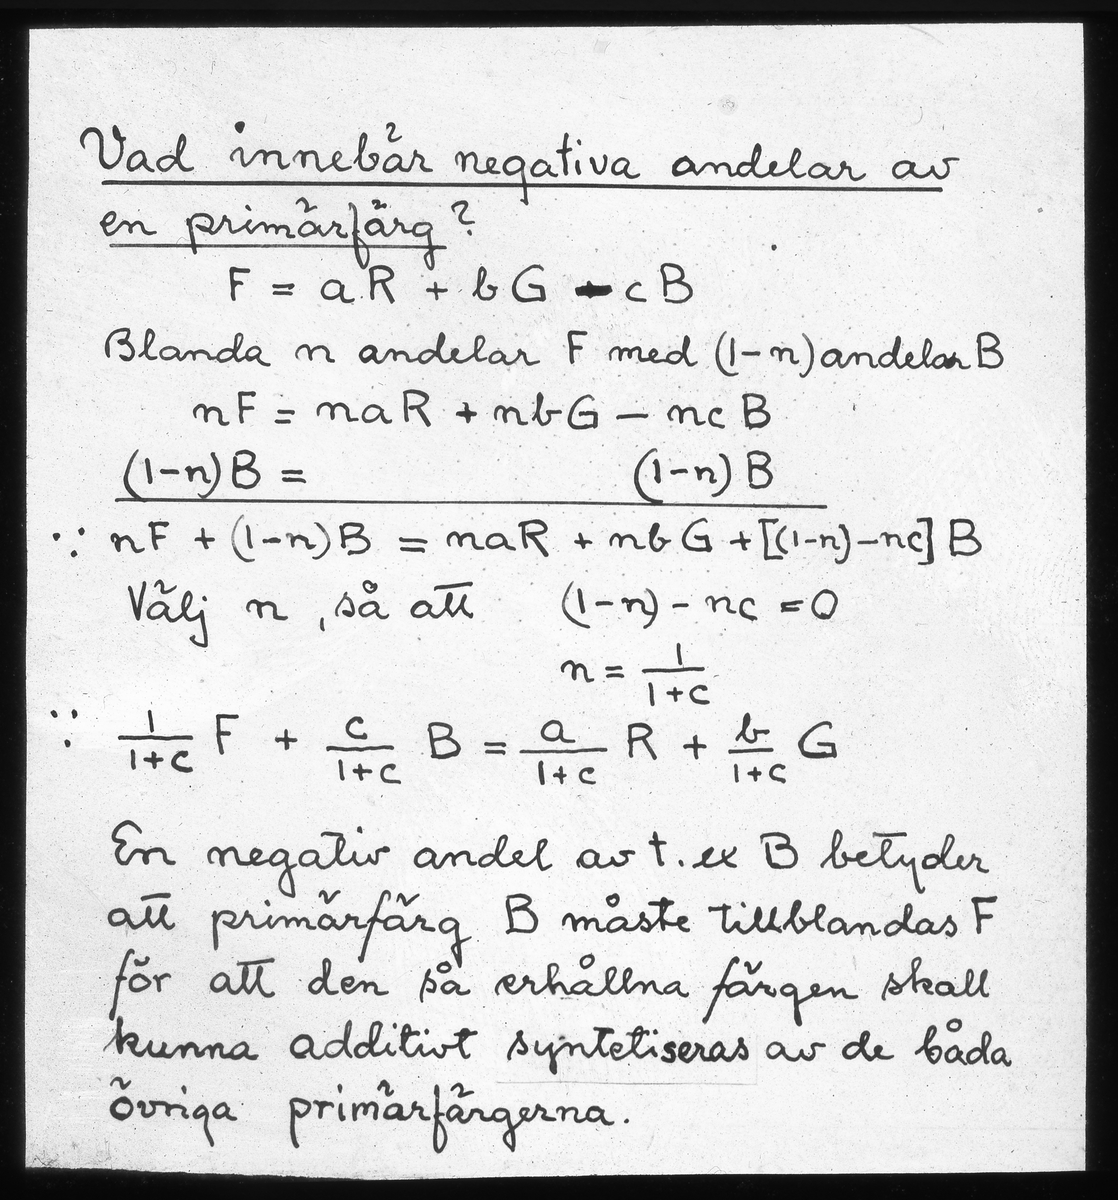 Vad innebär negativa andelar av
en primärfärg?
F = aR + bG - cB
Blanda n andelar F med (1-n) andelar B
nF = naR + nbG - ncB
(1-n)B = (1-n)B
∵ nF + (1-n)B = naR + nbG + [(1-n)-nc] B
Välj n, så att (1-n) - nc = 0
n = 1/(1+c)
∵ 1/(1+c) F + c/(1+c) B = a/(1+c) R + b/(1+c) G
En negativ andel av t.ex B betyder
att primärfärg B måste tillblandas F
för att den så erhållna färgen skall
kunna additivt syntetiseras av de båda
övriga primärfärgerna.